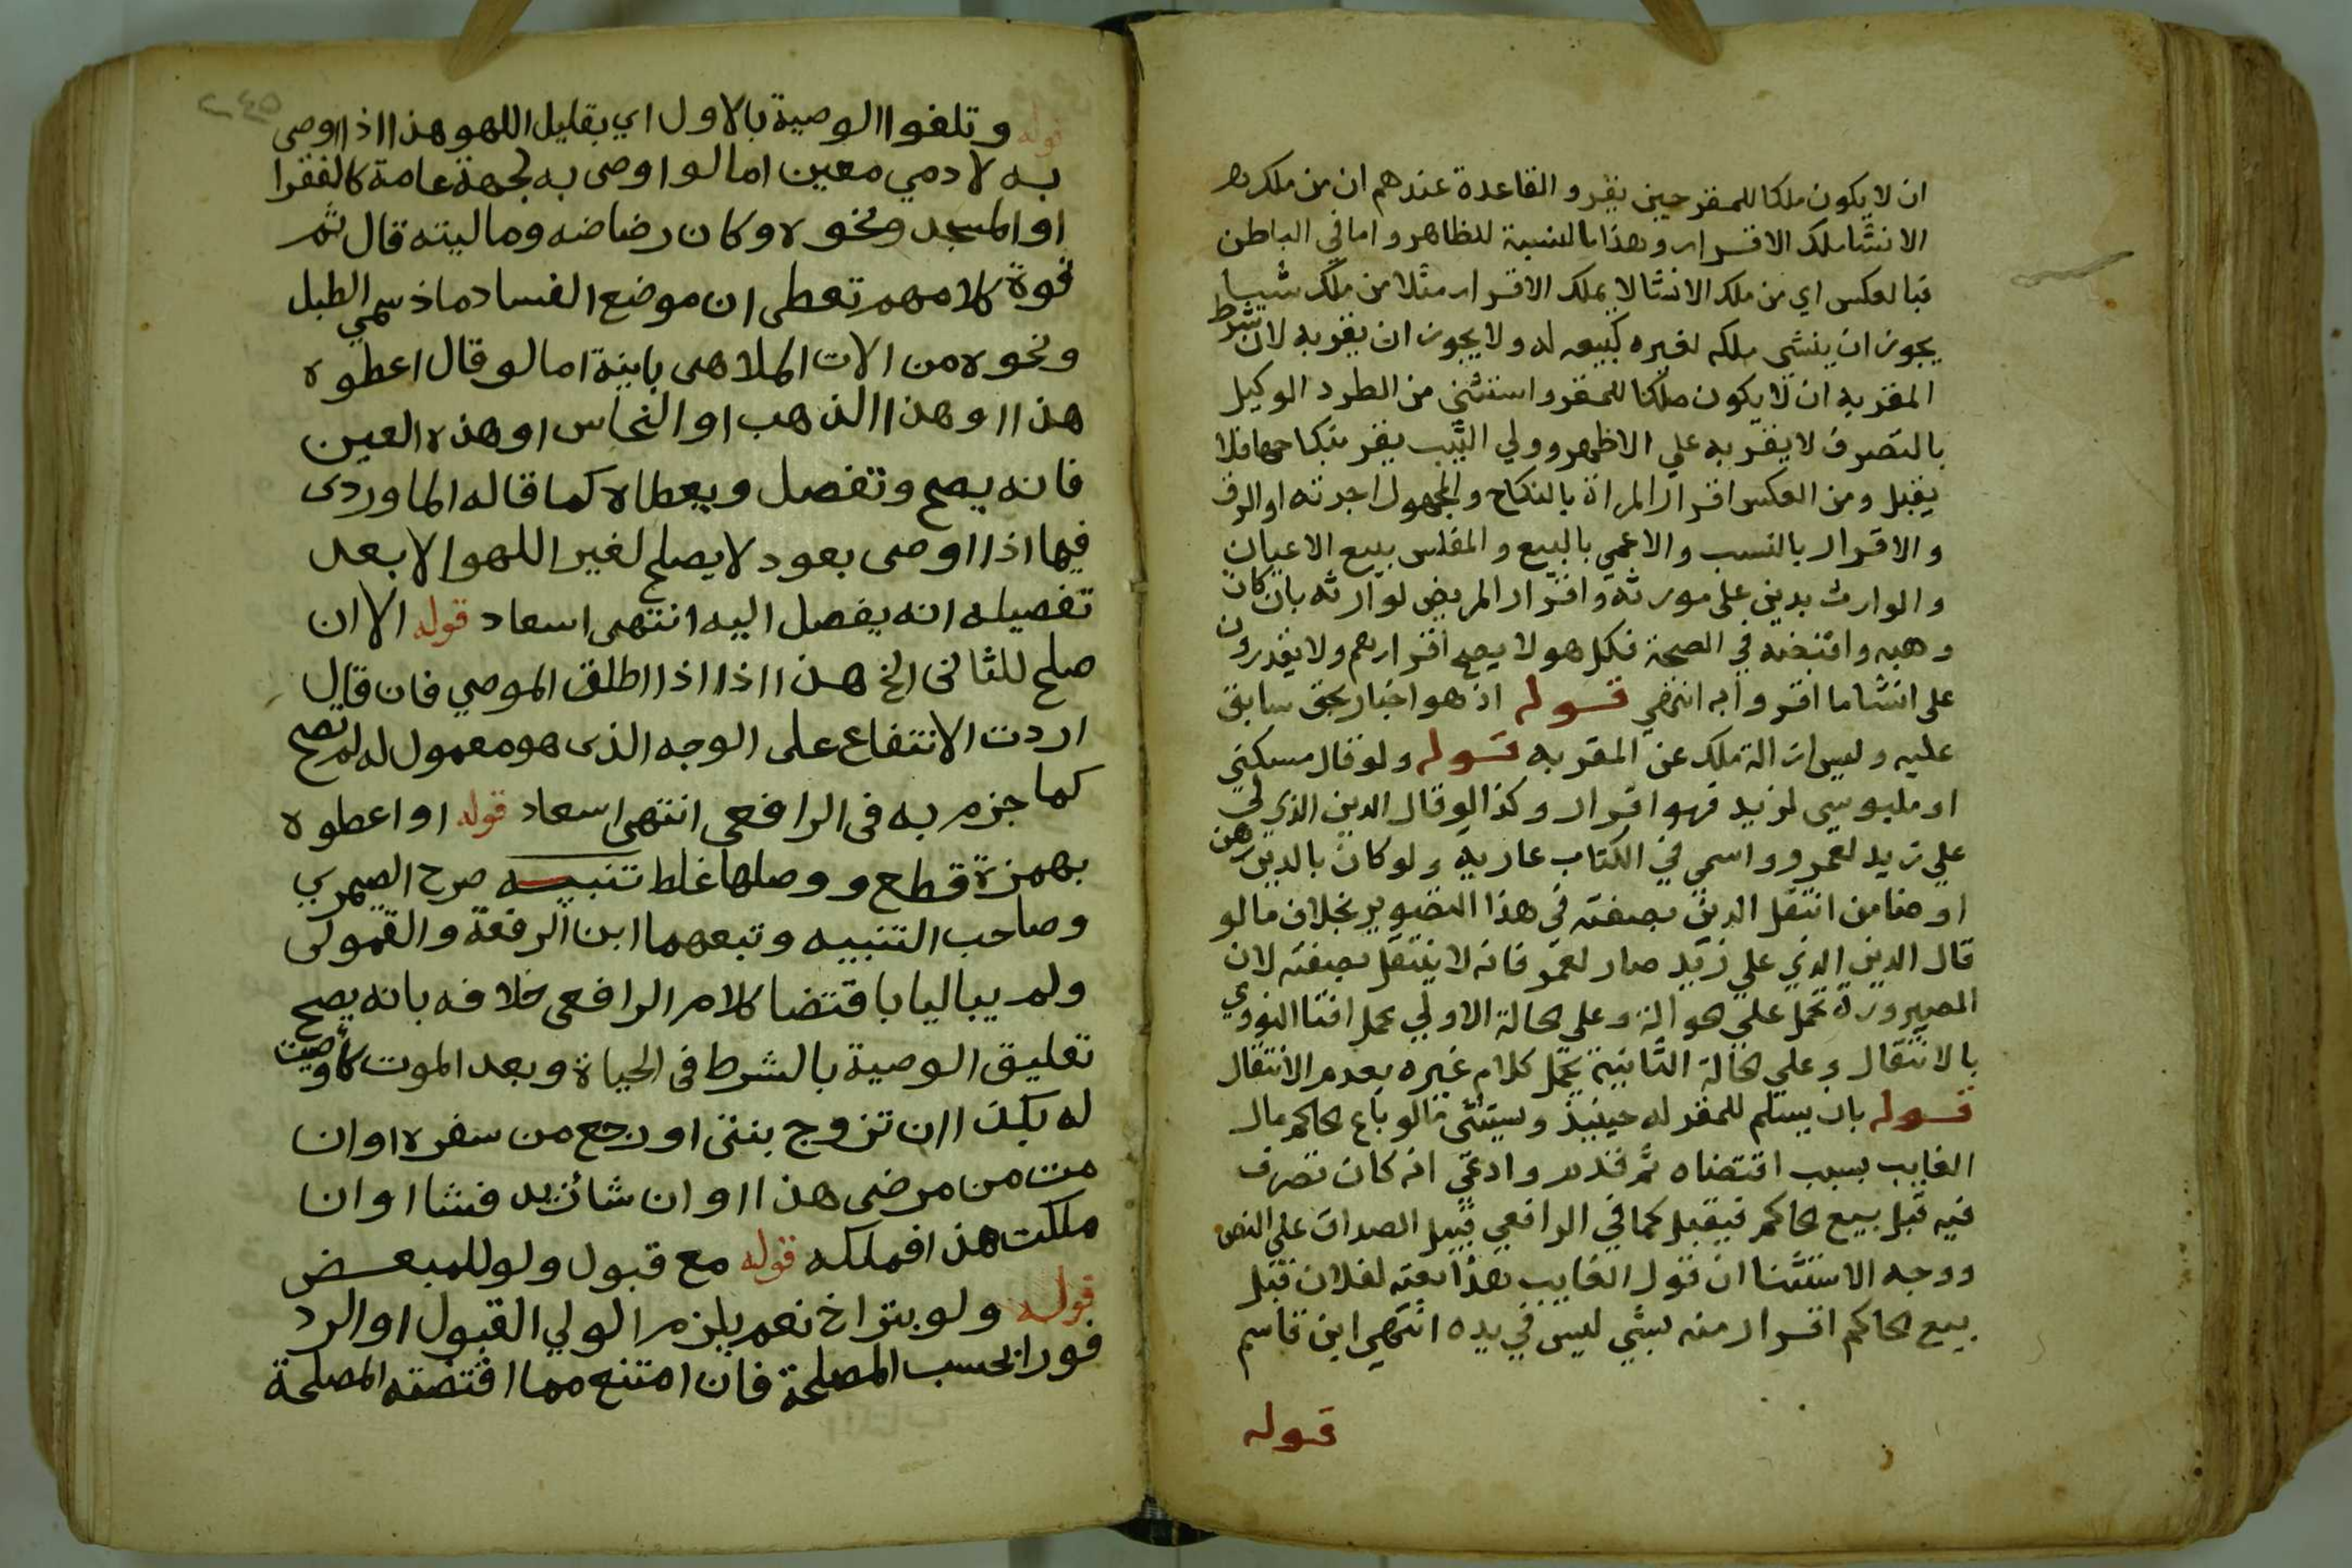 ان لا يكون ملكا للمقر حين يقر والقاعدة عندهم ان من ملك
الانشا ملك الاقرار وهذا بالنسبة للظاهر واما في الباطن
فبالعكس اي من ملك الانشا لا يملك الاقرار مثلا من ملك شيا
يجوز ان ينشي ملكه لغيره كبيعه له ولا يجوز ان يقر به لان شرط
المقر به ان لا يكون ملكا للمقر واستثني من الطرد الوكيل
بالتصرف لا يقر به علي الاظهر وولي الثيب يقر بنكاحها فلا
يقبل ومن العكس اقرار المراة بالنكاح والمجهول احريته او الرق
والاقرار بالنسب والاعمي بالبيع والمفلس ببيع الاعيان
والوارث بدين على مورثه واقرار المريض لوارثه بان كان
وهبه واقبضه في الصحة فكل هولا يصح اقرارهم ولا يقدرون
على انشا ما اقروا به انتهي قوله اذ هو اخبار بحق سابق
عليه وليس ازالة ملك عن المقر به قوله ولو قال مسكني
او ملبوسي لزيد فهو اقرار وكذا لو قال الدين الذي لي
علي زيد لعمرو واسمي في الكتاب عارية ولو كان بالدين رهن
او ضامن انتقل الدين بصفته في هذا التصوير بخلاف ما لو
قال الدين الذي علي زيد صار لعمرو فانه لا ينتقل بصفته لان
الصيرورة تحمل علي حوالة وعلي الحالة الاولي يحمل افتا النووي
بالانتقال وعلي الحالة الثانية يحمل كلام غيره بعدم الانتقال
قوله بان يسلم للمقر له حينيذ ويستثنى ما لو باع الحاكم مال
الغايب بسبب اقتضاه ثم قدم وادعي انه كان تصرف
فيه قبل بيع الحاكم فيقبل كما في الرافعي قبيل الصداق علي النص
ووجه الاستثنا ان قول الغايب هذا بعته لفلان قبل
بيع الحاكم اقرار منه بشي ليس في يده انتهي ابن قاسم
قوله
٢٤٥
قوله وتلغوا الوصية بالاول اي بقليل اللهو هذا اذا اوصى
به لادمي معين اما لو اوصى به لجهة عامة كالفقرا
او المسجد ونحوه وكان رضاضه وماليته قال ثم
فوة كلامهم تعطى ان موضع الفساد ماذ سمي الطبل
ونحوه من الات الملاهى باينة اما لو قال اعطوه
هذا او هذا الذهب او النحاس او هذه العين
فانه يصح وتفصل ويعطاه كما قاله الماوردى
فيما اذا اوصى بعود لا يصلح لغير اللهو الا بعد
تفصيله انه يفصل اليه انتهى اسعاد قوله الا ان
صلح للثانى الخ هذا اذا اذا اطلق الموصي فان قال
اردت الانتفاع على الوجه الذى هو معمول له لم تصح
كما جزم به فى الرافعى انتهى اسعاد قوله او اعطوه
بهمزة قطع و ووصلها غلط تنبيه صرح الصيمري
وصاحب التنبيه وتبعهما ابن الرفعة والقمولى
ولم يباليا باقتضا كلام الرافعى خلافه بانه يصح
تعليق الوصية بالشرط فى الحياة وبعد الموت كأوصيت
له بكذا ان تزوج بنتى او رجع من سفره او ان
مت من مرضى هذا او ان شا زيد فشا او ان
ملكت هذا فملكه قوله مع قبول ولو للمبعض
قوله ولو بتراخ نعم يلزم الولي القبول او الرد
فورا بحسب المصلحة فان امتنع مما اقتضته المصلحة